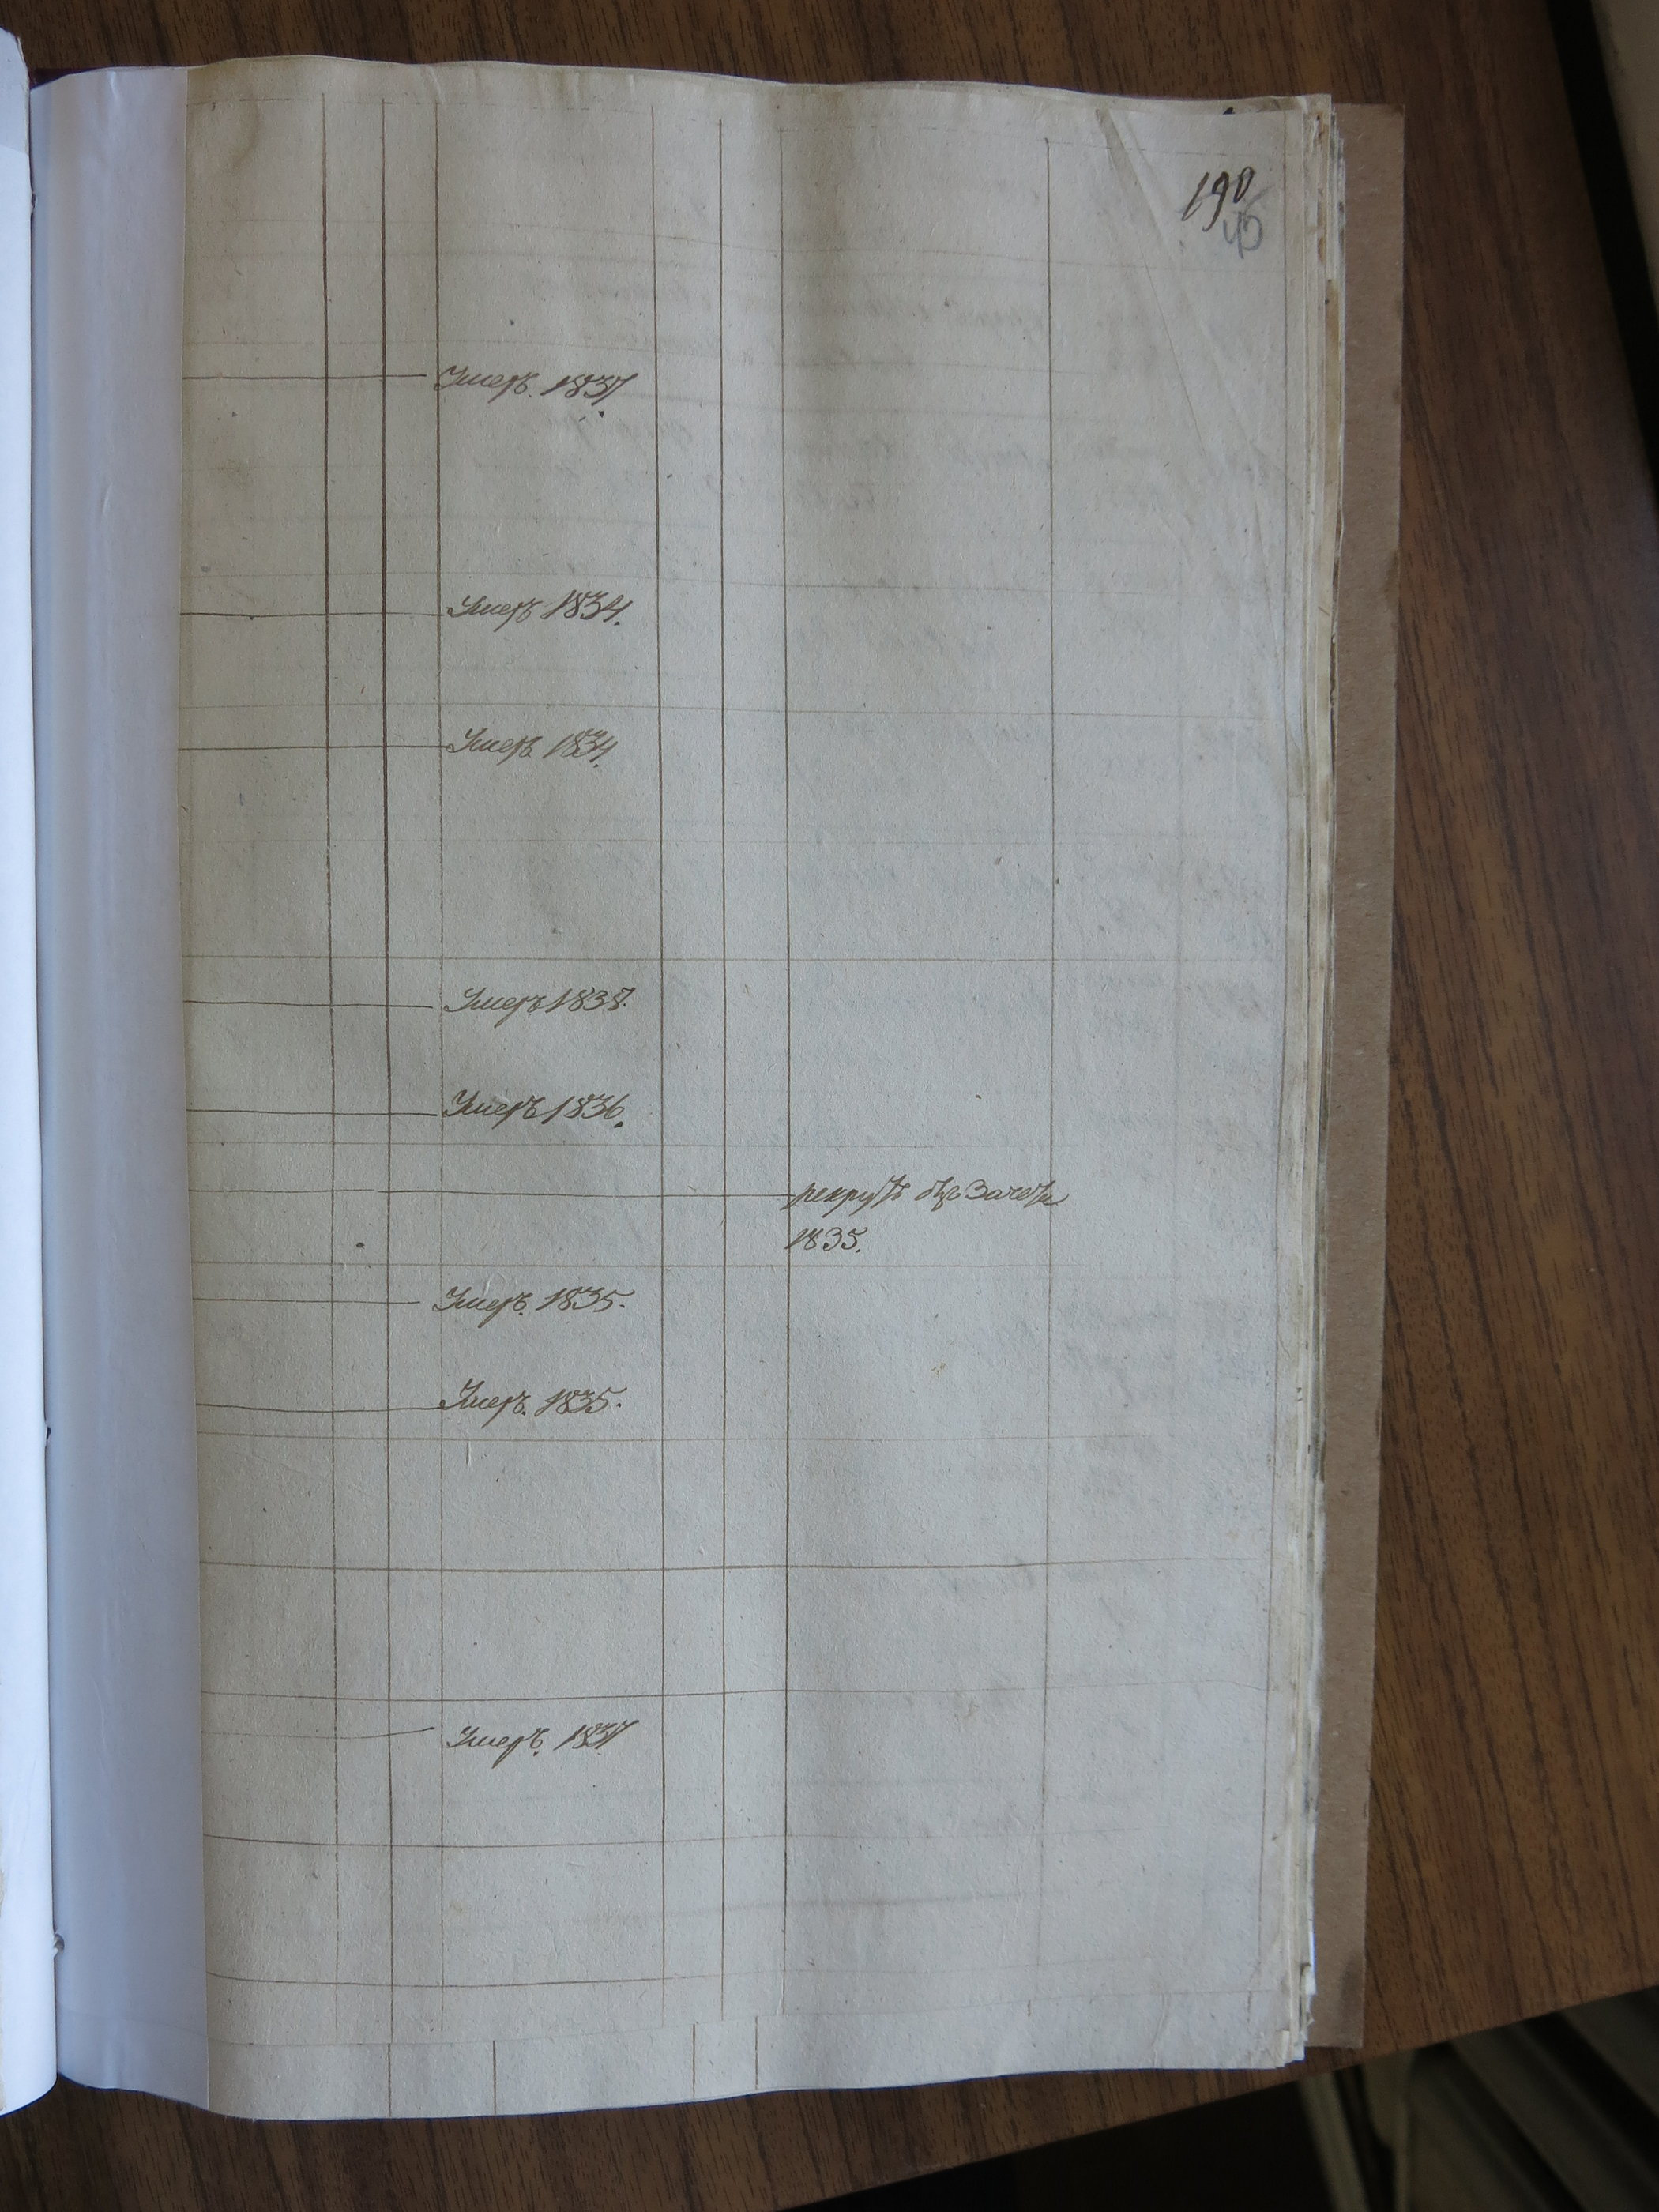 190
45
Умеръ. 1837
Умеръ 1834.
Умеръ 1834.
Умеръ 1838.
Умеръ 1836.
рекрутъ безъ зачета
1835.
Умеръ. 1835.
Умеръ. 1835.
Умеръ. 1837